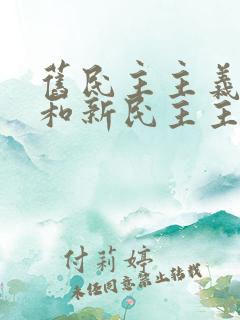 舊民主主義
和新民主主
付莉婷
未经同意禁止转载